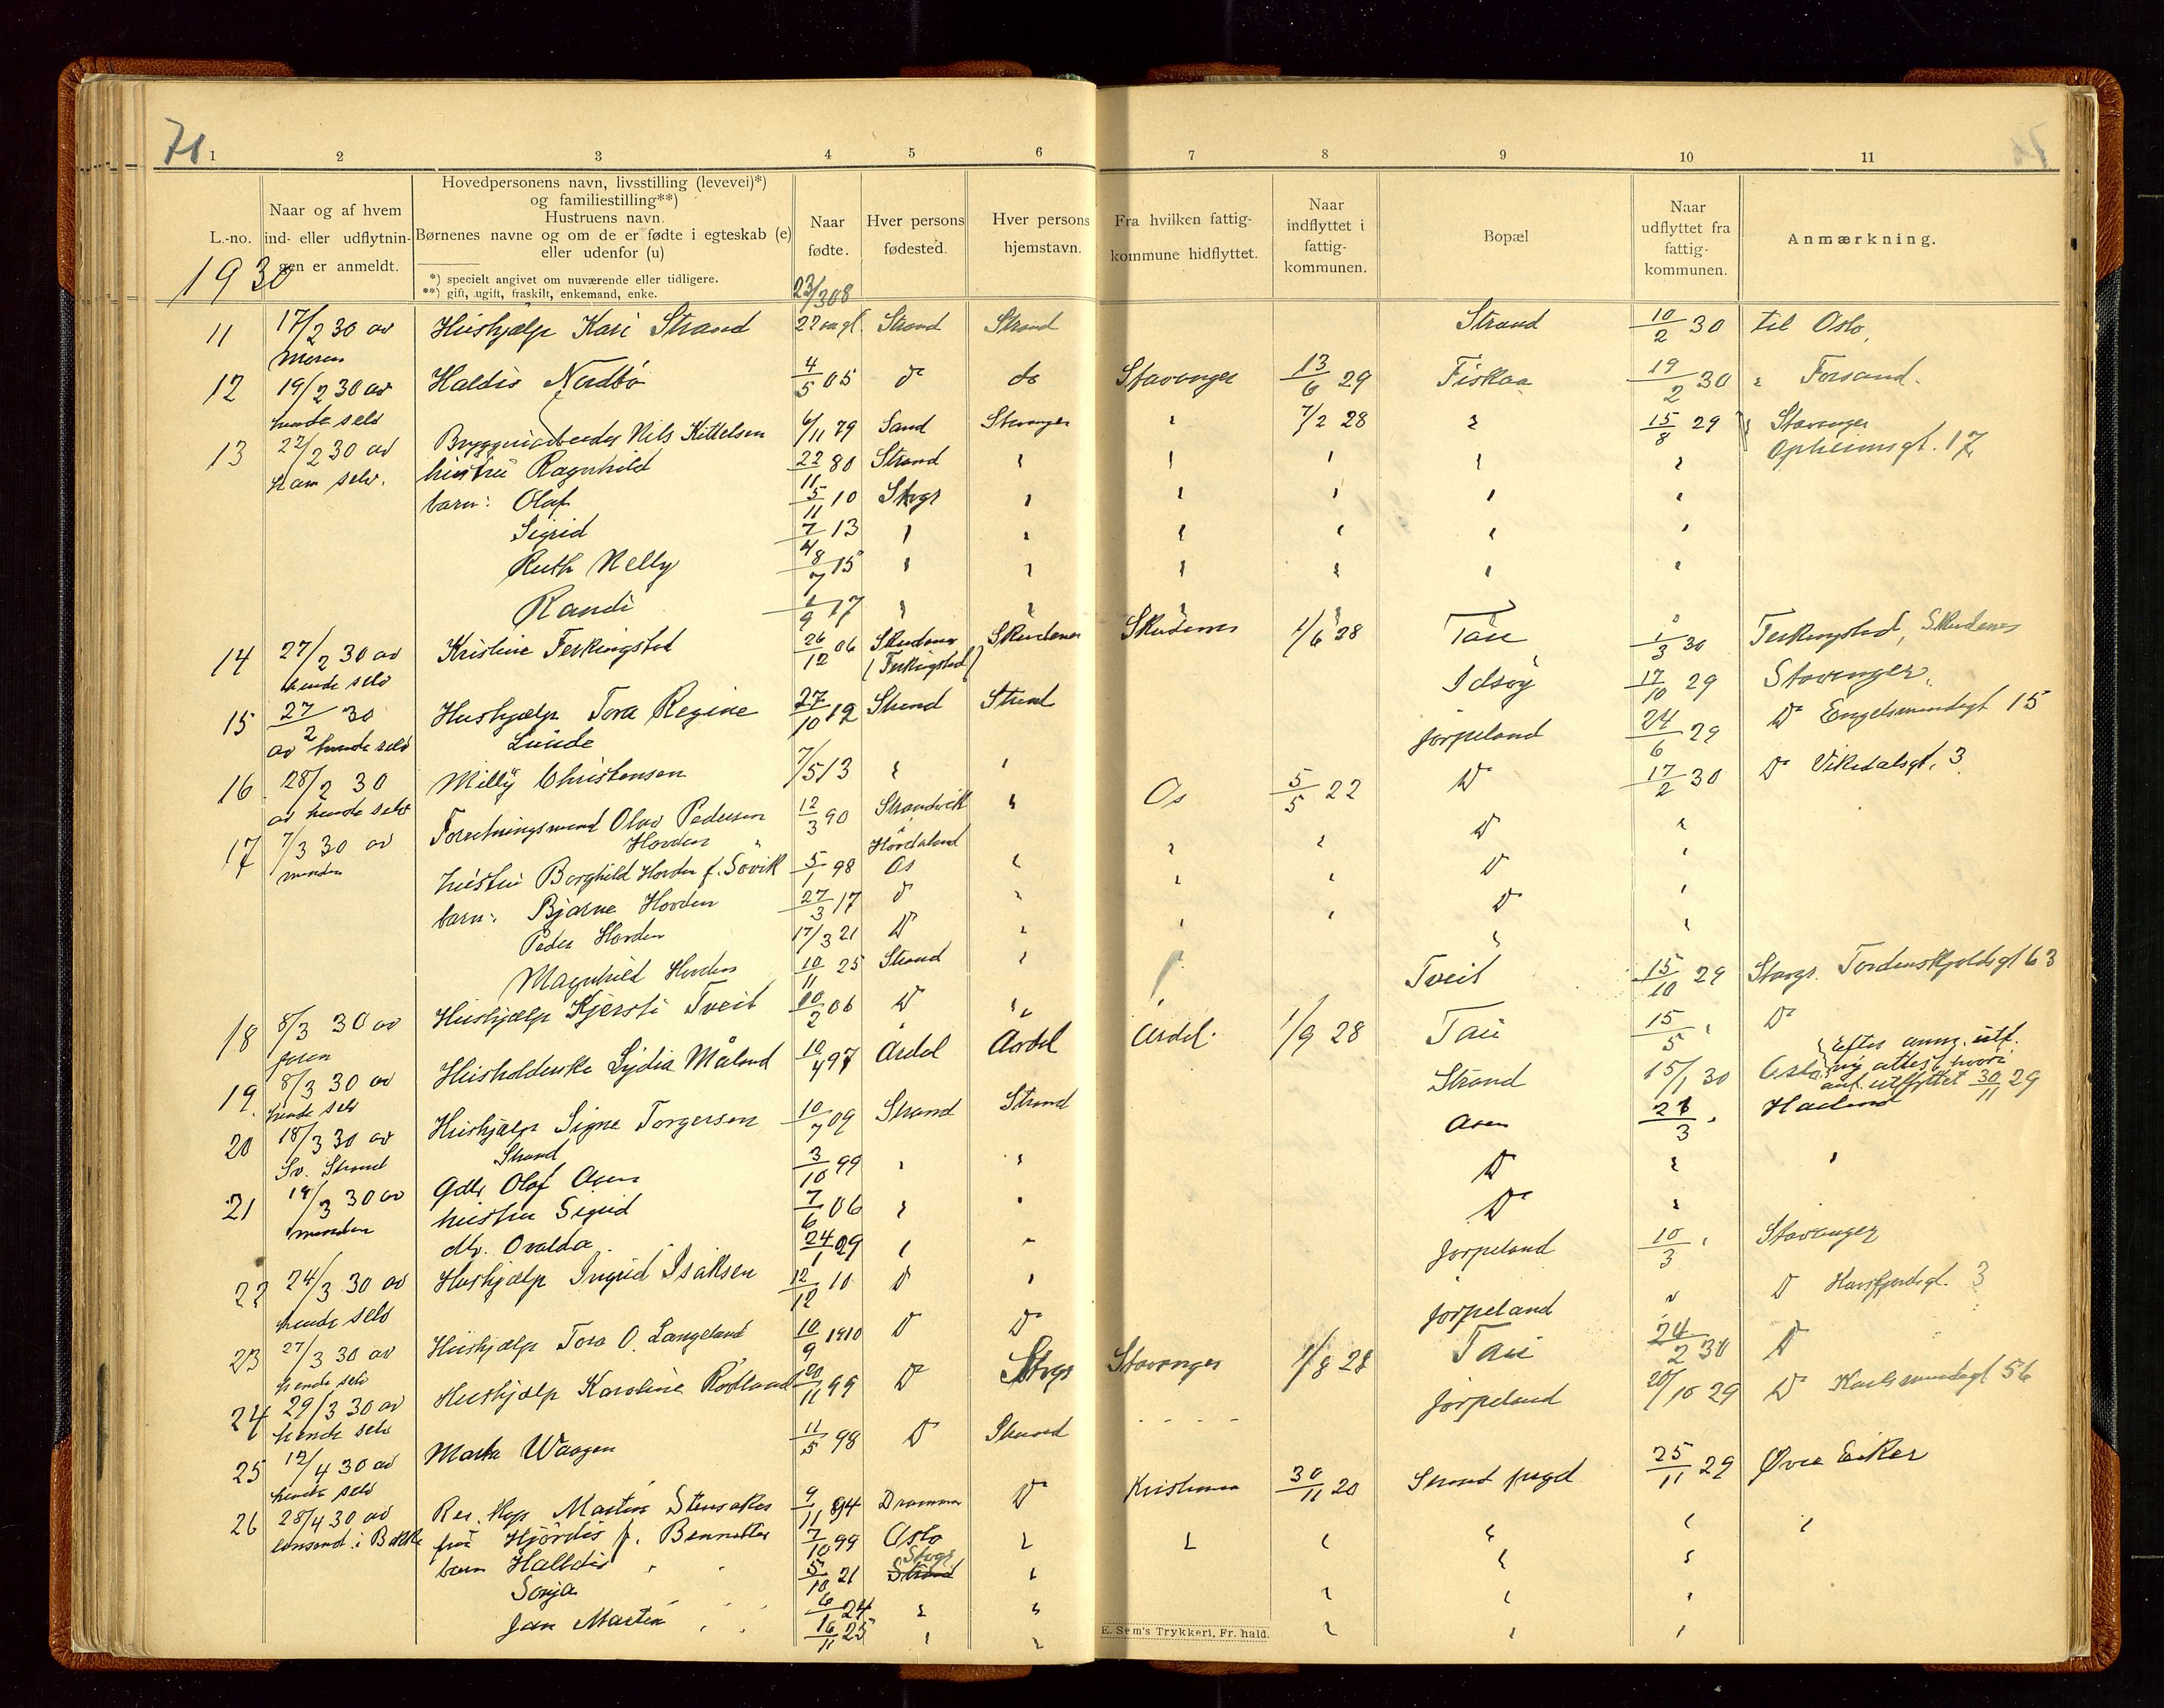 71
1 2 3 4 5 6 7 8 9 10 11
L.-no.
Naar og af hvem
ind- eller udflytnin-
gen er anmeldt.
Hovedpersonens navn, livsstilling (levevei)*)
og familiestilling**)
Hustruens navn.
Børnenes navne og om de er fødte i egteskab (e)
eller udenfor (u)
*) specielt angivet om nuværende eller tidligere.
**) gift, ugift, fraskilt, enkemand, enke.
Naar
fødte.
Hver persons
fødested.
Hver persons
hjemstavn.
Fra hvilken fattig-
kommune hidflyttet.
Naar
indflyttet i
fattig-
kommunen.
Bopæl
Naar
udflyttet fra
fattig-
kommunen.
Anmærkning.
1930
23/3 08
11 17/2 30 av Hushjælp Kari Strand 22 aa gl. Strand Strand Strand 10/2 30 til Oslo,
moren
12 19/2 30 av Haldis Nordbö 4/5 05 do do Stavanger 13/6 29 Fiskaa 19/2 30 " Forsand.
hende selv
13 22/2 30 av Bryggeriarbeider Nils Kittelsen 6/11 79 Sand Stavanger " 7/2 28 " 15/8 29 " Stavanger
ham selv. hustru Ragnhild 22/11 80 Strand " " " " " Opheimsgt. 17
barn: Olaf 5/11 10 Stvgr " " " " "
Sigrid 7/4 13 " " " " " "
Ruth Nelly 8/7 15 " " " " " "
Randi 1/9 17 " " " " " "
14 27/2 30 av Kristine Ferkingstad 26/12 06 Skudenes Skudenes Skudenes 1/6 28 Tau 1/3 30 Ferkingstad, Skudenes
hende selv (Ferkingstad)
15 27/2 30 Hushjælp Tora Regine 27/10 12 Strand Strand Idsöy 17/10 29 Stavanger
av hende selv Lunde
16 28/2 30 Milly Christensen 7/5 13 " " Jörpeland 24/6 29 Do Engelsmindegt 15
av hende selv
17 7/3 30 av Forretningsmand Olav Pedersen 12/3 90 Strandvik " Os 5/5 22 Do 17/2 30 Do Vikedalsgt. 3
manden Hovden Hordaland
hustru Borghild Hovden f. Sövik 5/1 98 Os " " " Do "
barn: Bjarne Hovden 27/3 17 do " " " Do "
Peder Hovden 17/3 21 Do " " " Do "
Magnhild Hovden 10/11 25 Strand " " "
18 8/3 30 av Hushjælp Kjersti Tveit 10/2 06 Do " Tveit 15/10 29 Stavgr. Tordenskjoldsgt 63
faren
19 8/3 30 av Husholderske Lydia Måland 10/4 97 Årdal Aardal Årdal. 1/9 28 Tau 15/5 " Do
hende selv
20 18/3 30 av Hushjælp Signe Torgersen 10/7 09 Strand Strand Strand 15/1 30 Oslo Efter anm. utf.
Sv. Strand Strand ny attest hvori
anf. utflyttet 30/11 29
21 19/3 30 av Gdbr Olaf Aasen 3/10 99 " " Aasen 28/3 " Haaland
manden hustru Sigrid 7/6 06 " " Do " "
dtr. Ovalda 24/1 29 " " Do "
22 24/3 30 av Hushjælp Ingrid Isaksen 12/12 10 do " Jörpeland 10/3 " Stavanger
hende selv
23 27/3 30 av Hushjælp Tora O. Langeland 10/9 1910 Do Do Jörpeland " Do Havsfjordsgt. 3
hende selv
24 29/3 30 av Hushjælp Karoline Rödland 20/11 99 Do Stvgr Stavanger 1/8 28 Tau 24/2 30 Do
hende selv
25 12/4 30 av Marta Waagen 11/5 98 Do Strand - - - - Jörpeland 20/10 29 Do Karlsmindegt 56
hende selv
26 28/4 30 av Res. Kap. Martin Stensaker 9/11 94 Drammen Do Kristiania 30/11 20 Strand prgd 25/11 29 Øvre Eiker
lensmd. i Bakke fru Hjördis f. Bennetter 7/10 99 Oslo " " " " " "
barn Halldis " " 5/10 21 Stvgr Strand " " "
Sonja " " 6/ 24 " " " " "
Jan Martin " " 16/11 25 " " " " "
E. Sem's Trykkeri, Fr. hald.